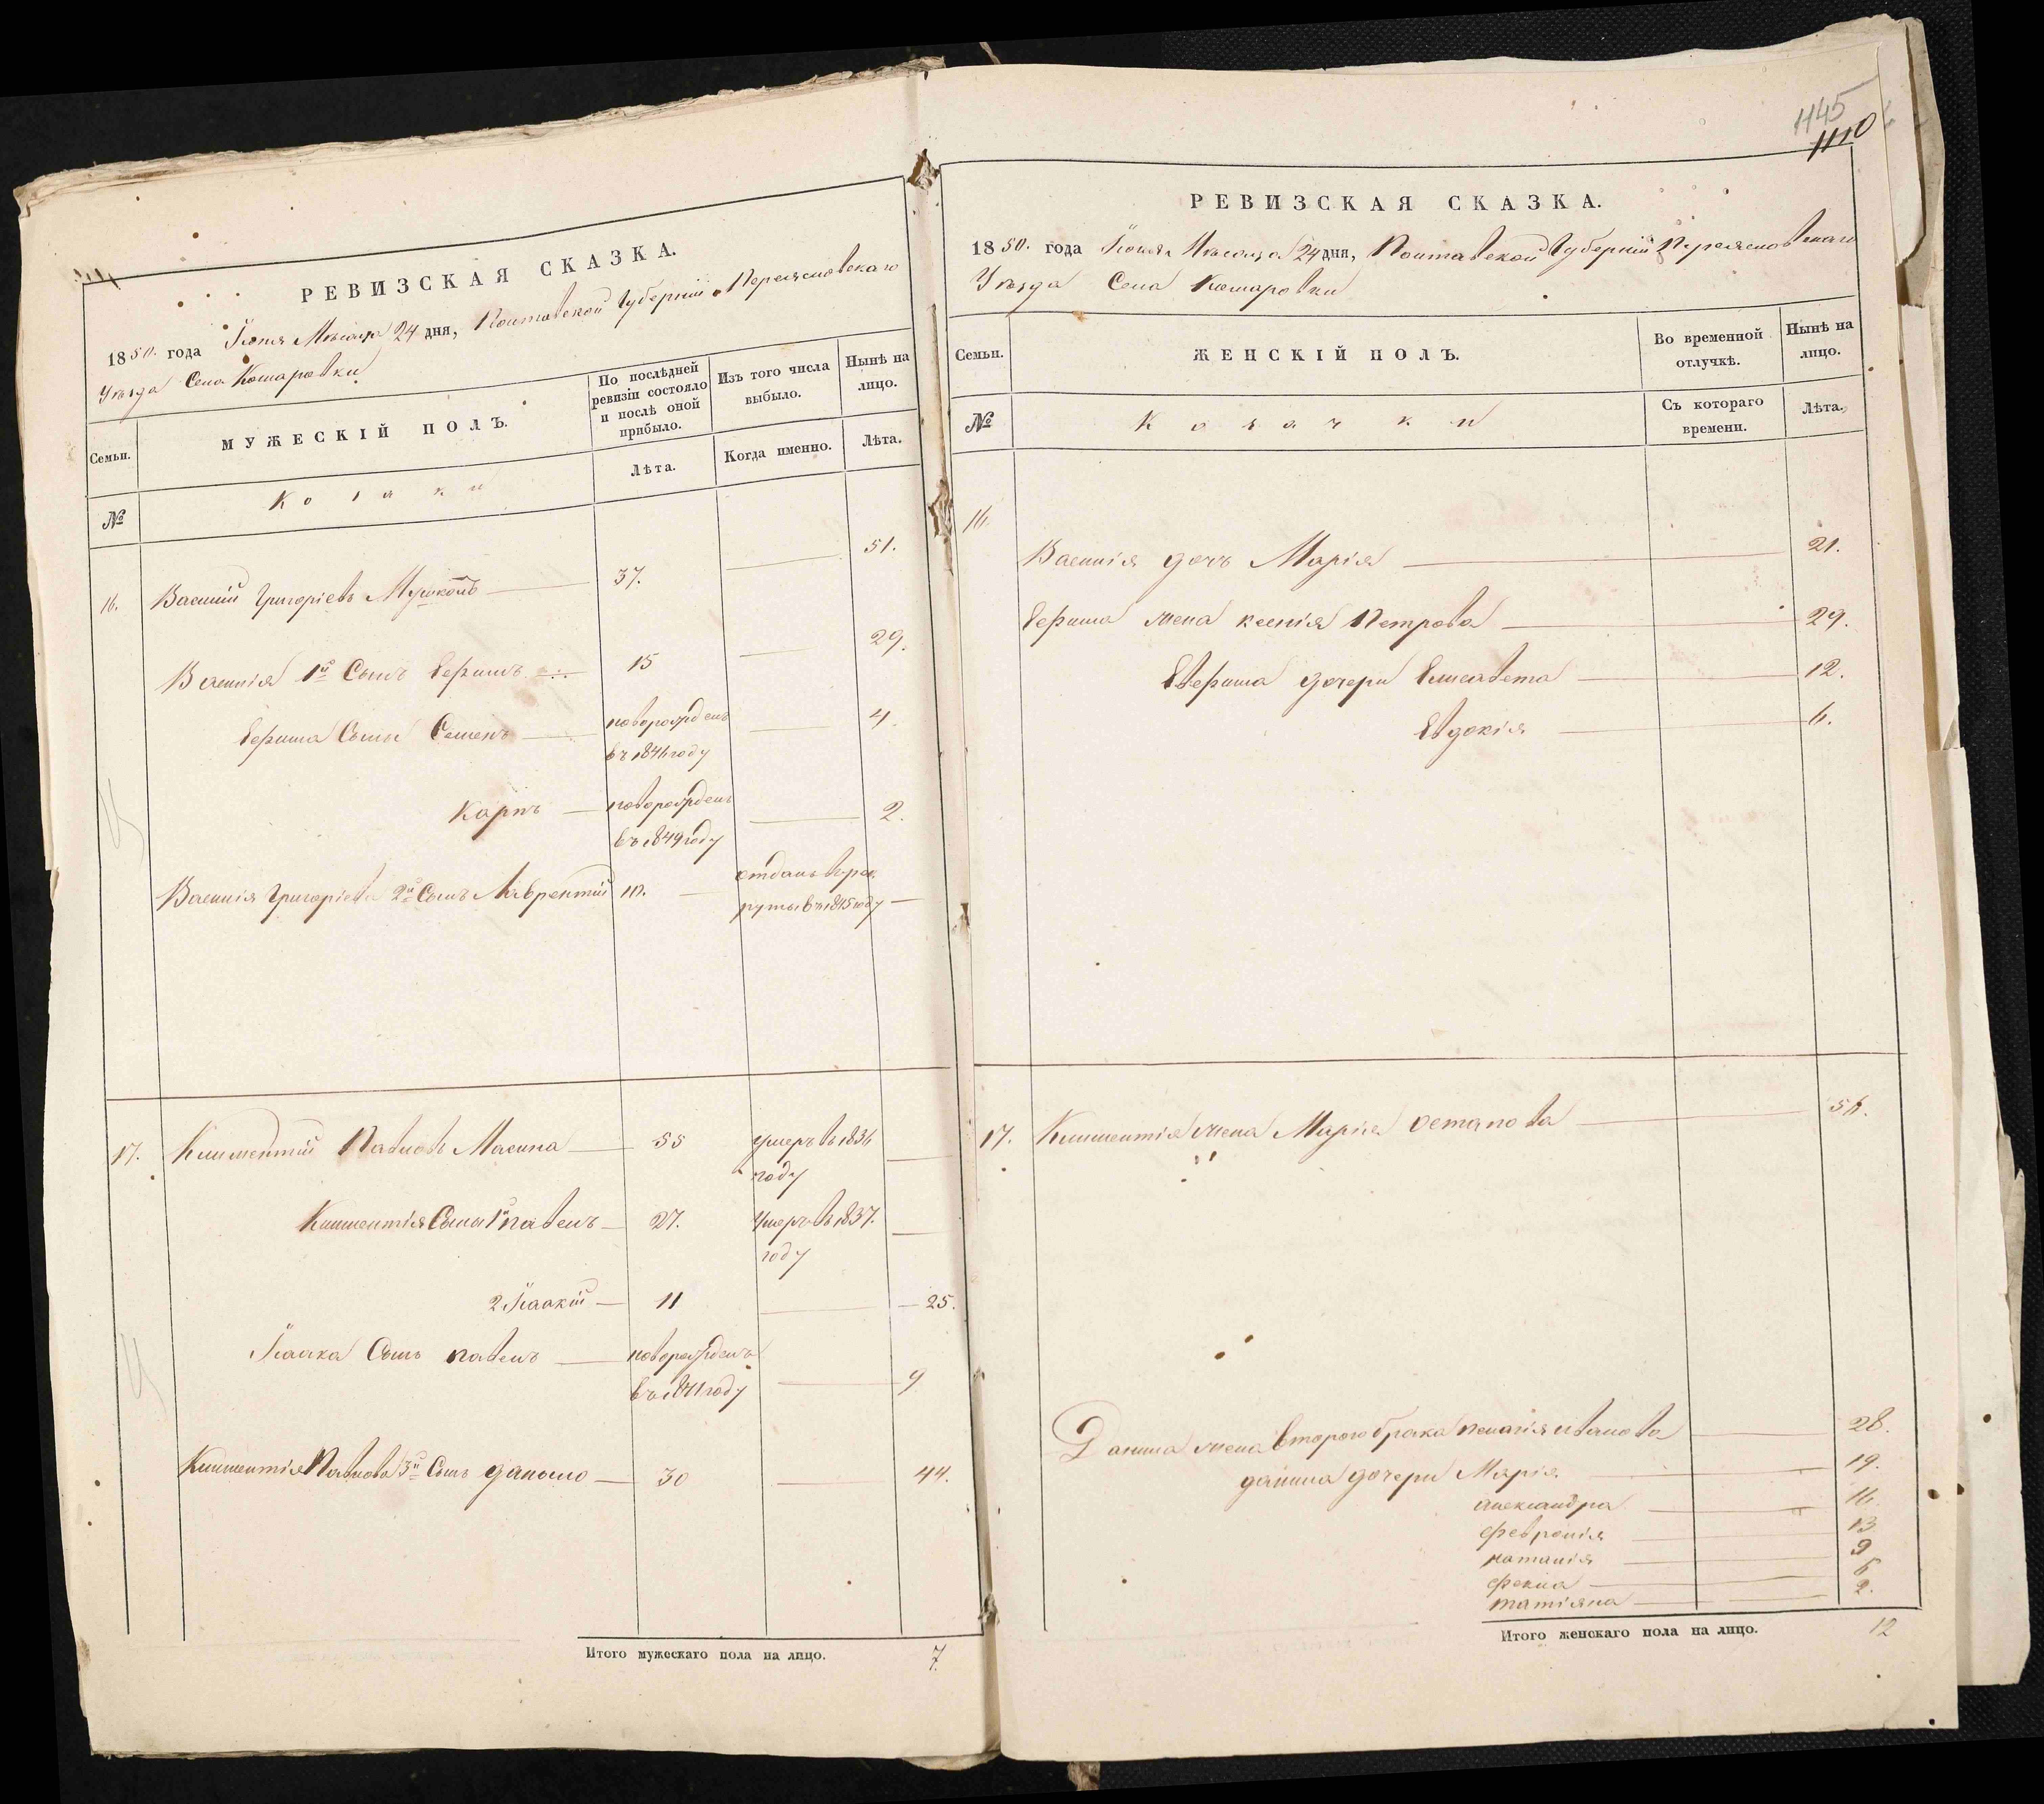 РЕВИЗСКАЯ СКАЗКА.
1850. года Іюня Мѣсяца 24 дня, Полтавской Губерніи Переяславскаго
Уѣзда Села Комаровки
Семьи.
МУЖЕСКІЙ ПОЛЪ.
По послѣдней ревизіи состояло и послѣ оной прибыло.
Изъ того числа выбыло.
Нынѣ на лицо.
Лѣта.
Когда именно.
Лѣта.
№
Козаки
16. Василій Григорієвъ 37. 51.
Василія 1й Сынъ Ефимъ 15 29.
Ефима Сыны Семенъ новорожденъ 4.
въ 1846 году
Карпъ новорожденъ 2.
въ 1849 году
Василія Григоріева 2й Сынъ Лаврентій 10. отданъ въ рек
руты въ 1845 году
17. Климентій Павловъ Масина 55 умеръ въ 1836
году
Климентія Сыны 1й павелъ 27. Умеръ въ 1837.
году
2 Ісаакій 11 25.
Ісаака Сынъ павелъ новорожденъ
въ 1841 году 9
Климентія Павлова 3й Сынъ данило 30 44.
Итого мужескаго пола на лицо. 7.
1145
1110
РЕВИЗСКАЯ СКАЗКА.
1850. года Іюня Мѣсяца 24 дня, Полтавской Губерніи Переяславскаго
Уѣзда Села Комаровки
Семьи.
ЖЕНСКІЙ ПОЛЪ.
Во временной отлучкѣ.
Нынѣ на лицо.
№
Козачки
Съ котораго времени.
Лѣта.
16.
Василія дочь Марія 21.
Ефима жена ксенія Петрова 29.
Евфима дочери Елисавета 12.
Евдокія 6.
17. Климентія жена Марія Остапова 56.
Данила жена второго брака пелагія иванова 28.
данила дочери Марія 19.
александра 16.
февронія 13
наталія 9
фекла 6
татіяна 2.
Итого женскаго пола на лицо. 12